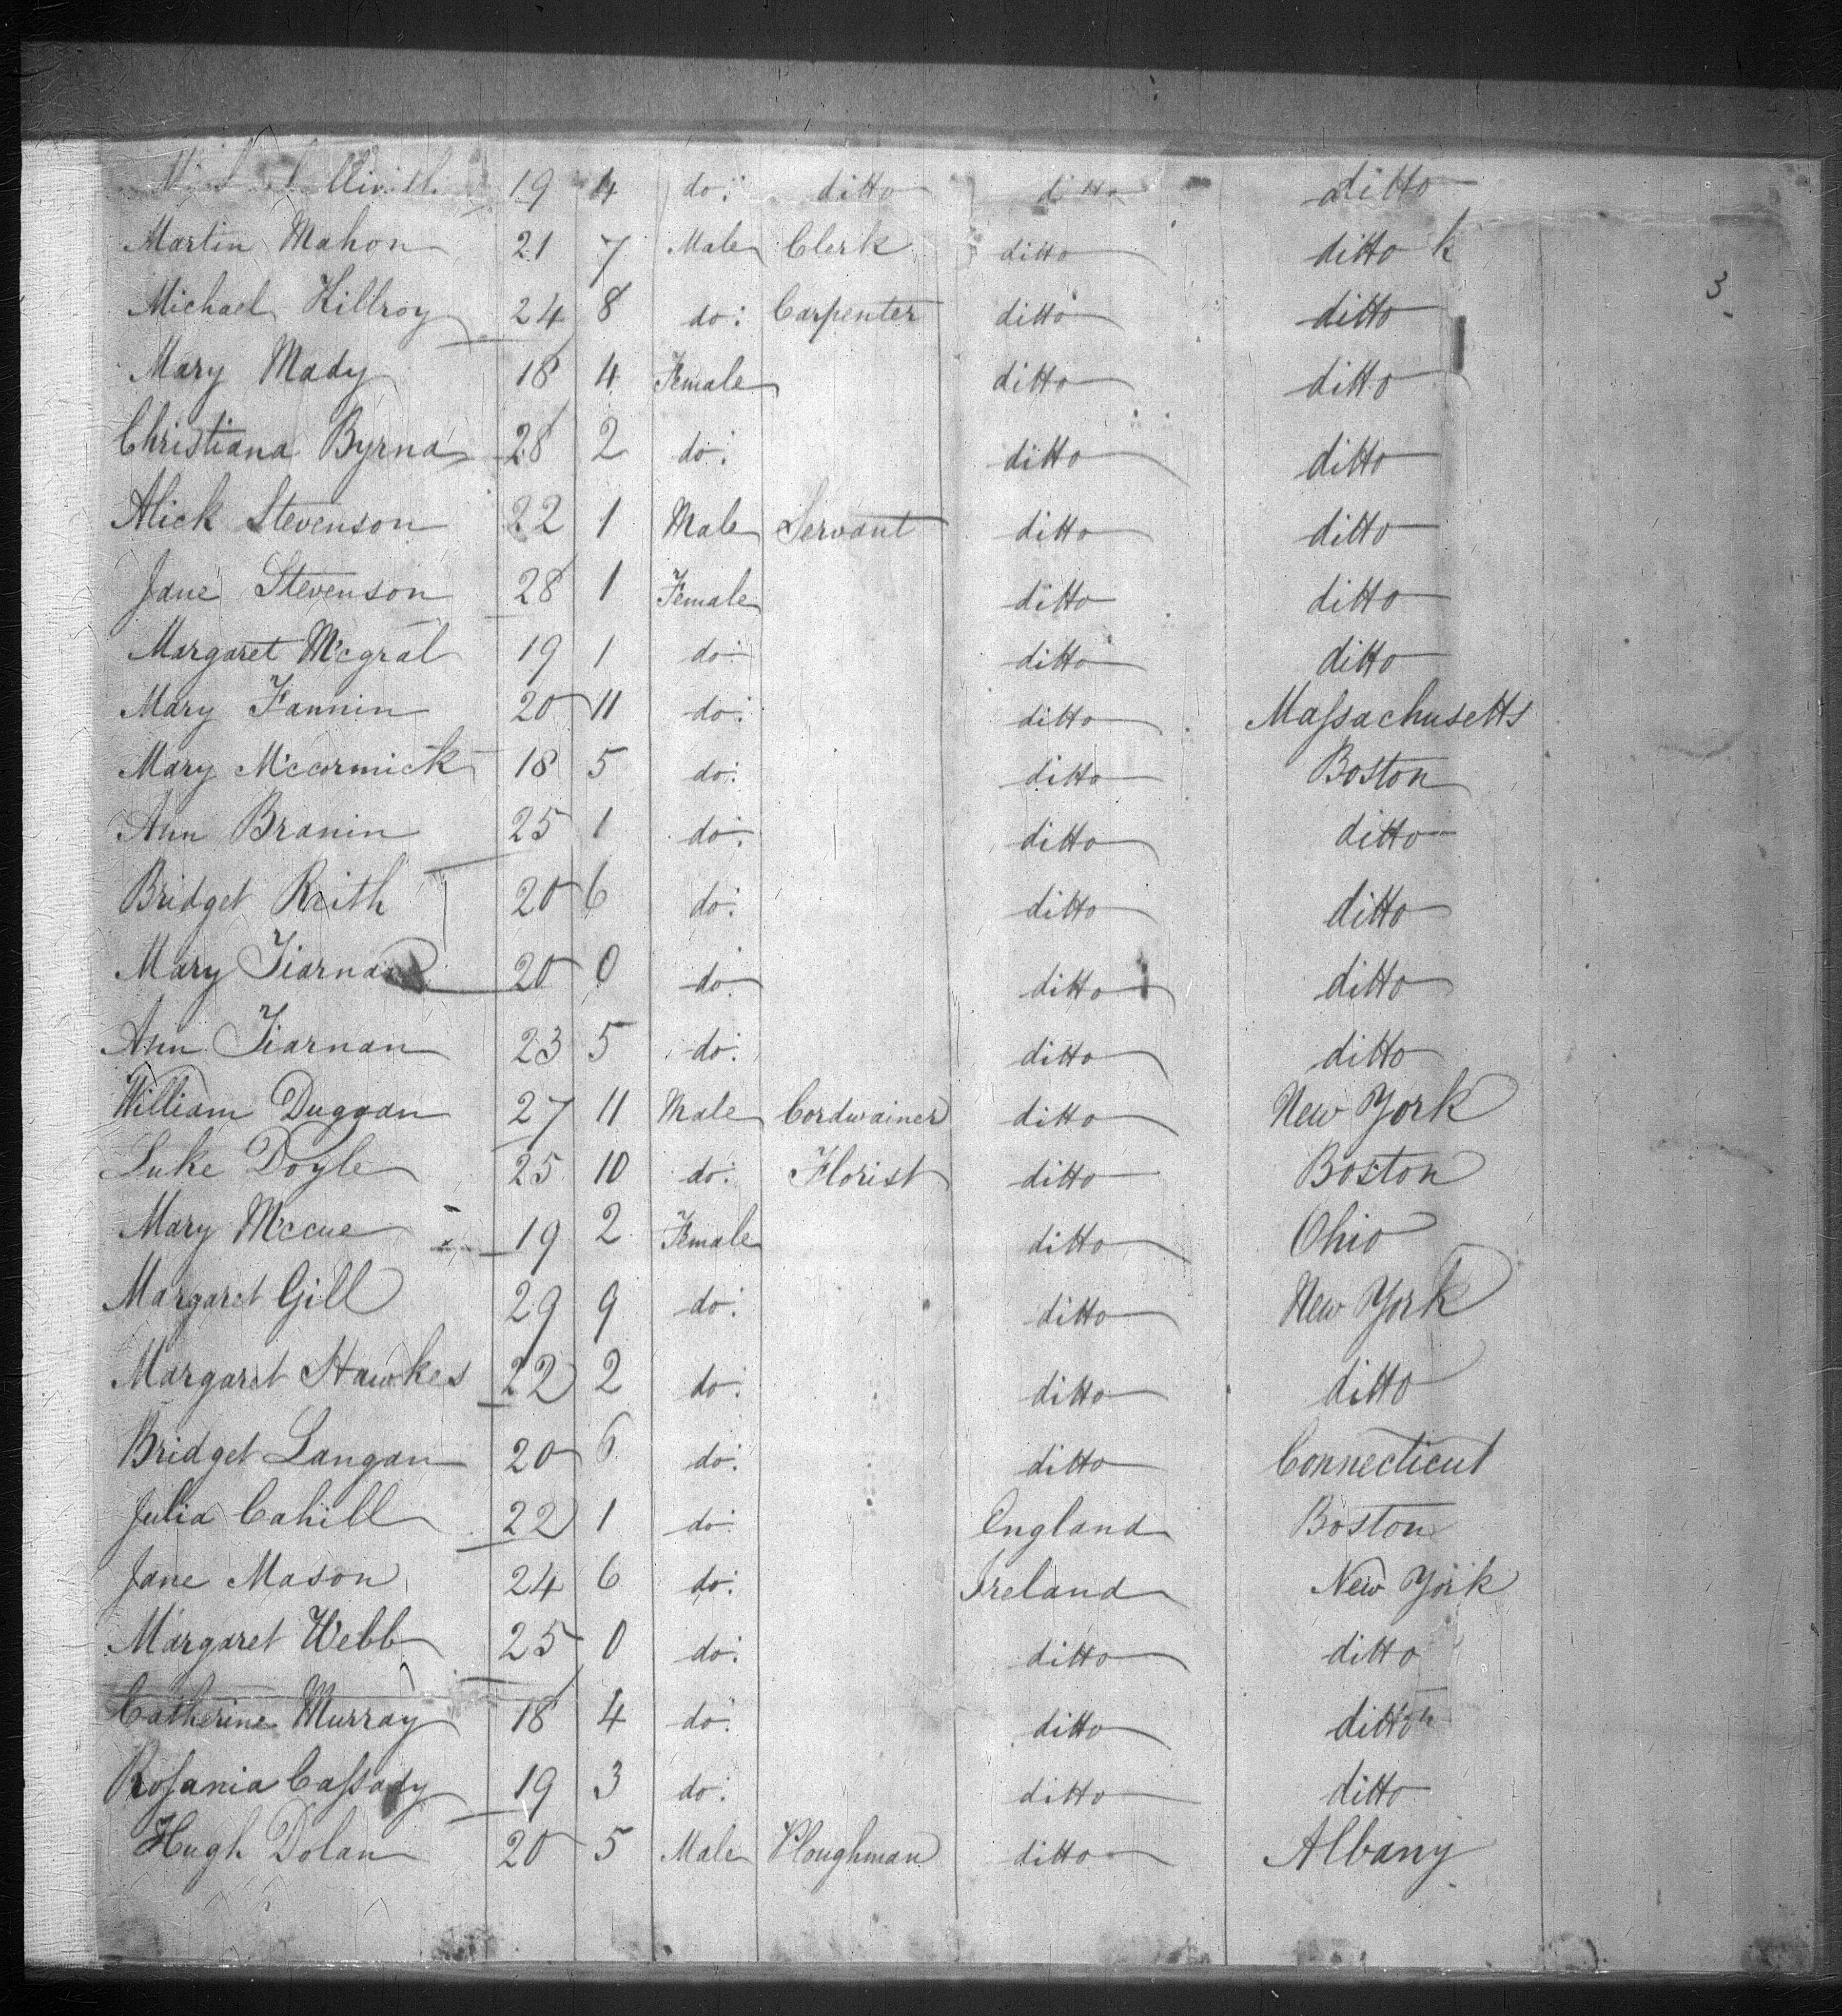 19 4 do: ditto ditto ditto
Martin Mahon 21 7 Male Clerk ditto ditto k
3
Michael Killroy 24 8 do: Carpenter ditto ditto
Mary Mady 18 4 Female ditto ditto
Christiana Byrna 28 2 do: ditto ditto
Alick Stevenson 22 1 Male Servant ditto ditto
Jane Stevenson 28 1 Female ditto ditto
Margaret Mcgrat 19 1 do: ditto ditto
Mary Fannin 20 11 do: ditto Maſsachusetts
Mary Mccormick 18 5 do: ditto Boston
Ann Branin 25 1 do: ditto ditto
Bridget Reith 20 6 do: ditto ditto
Mary 20 0 do: ditto ditto
Ann Tiarnan 23 5 do: ditto ditto
William Duggan 27 11 Male Cordwainer ditto New York
Luke Doyle 25 10 do: Florist ditto Boston
Mary Mccue 19 2 Female ditto Ohio
Margaret Gill 29 9 do: ditto New York
Margaret Hawkes 22 2 do: ditto ditto
Bridget Langan 20 6 do: ditto Connecticut
Julia Cahill 22 1 do: England Boston
Jane Mason 24 6 do: Ireland New York
Margaret Webb 25 0 do: ditto ditto
Catherine Murray 18 4 do: ditto ditto
Roſania Caſsady 19 3 do: ditto ditto
Hugh Dolan 20 5 Male Ploughman ditto Albany